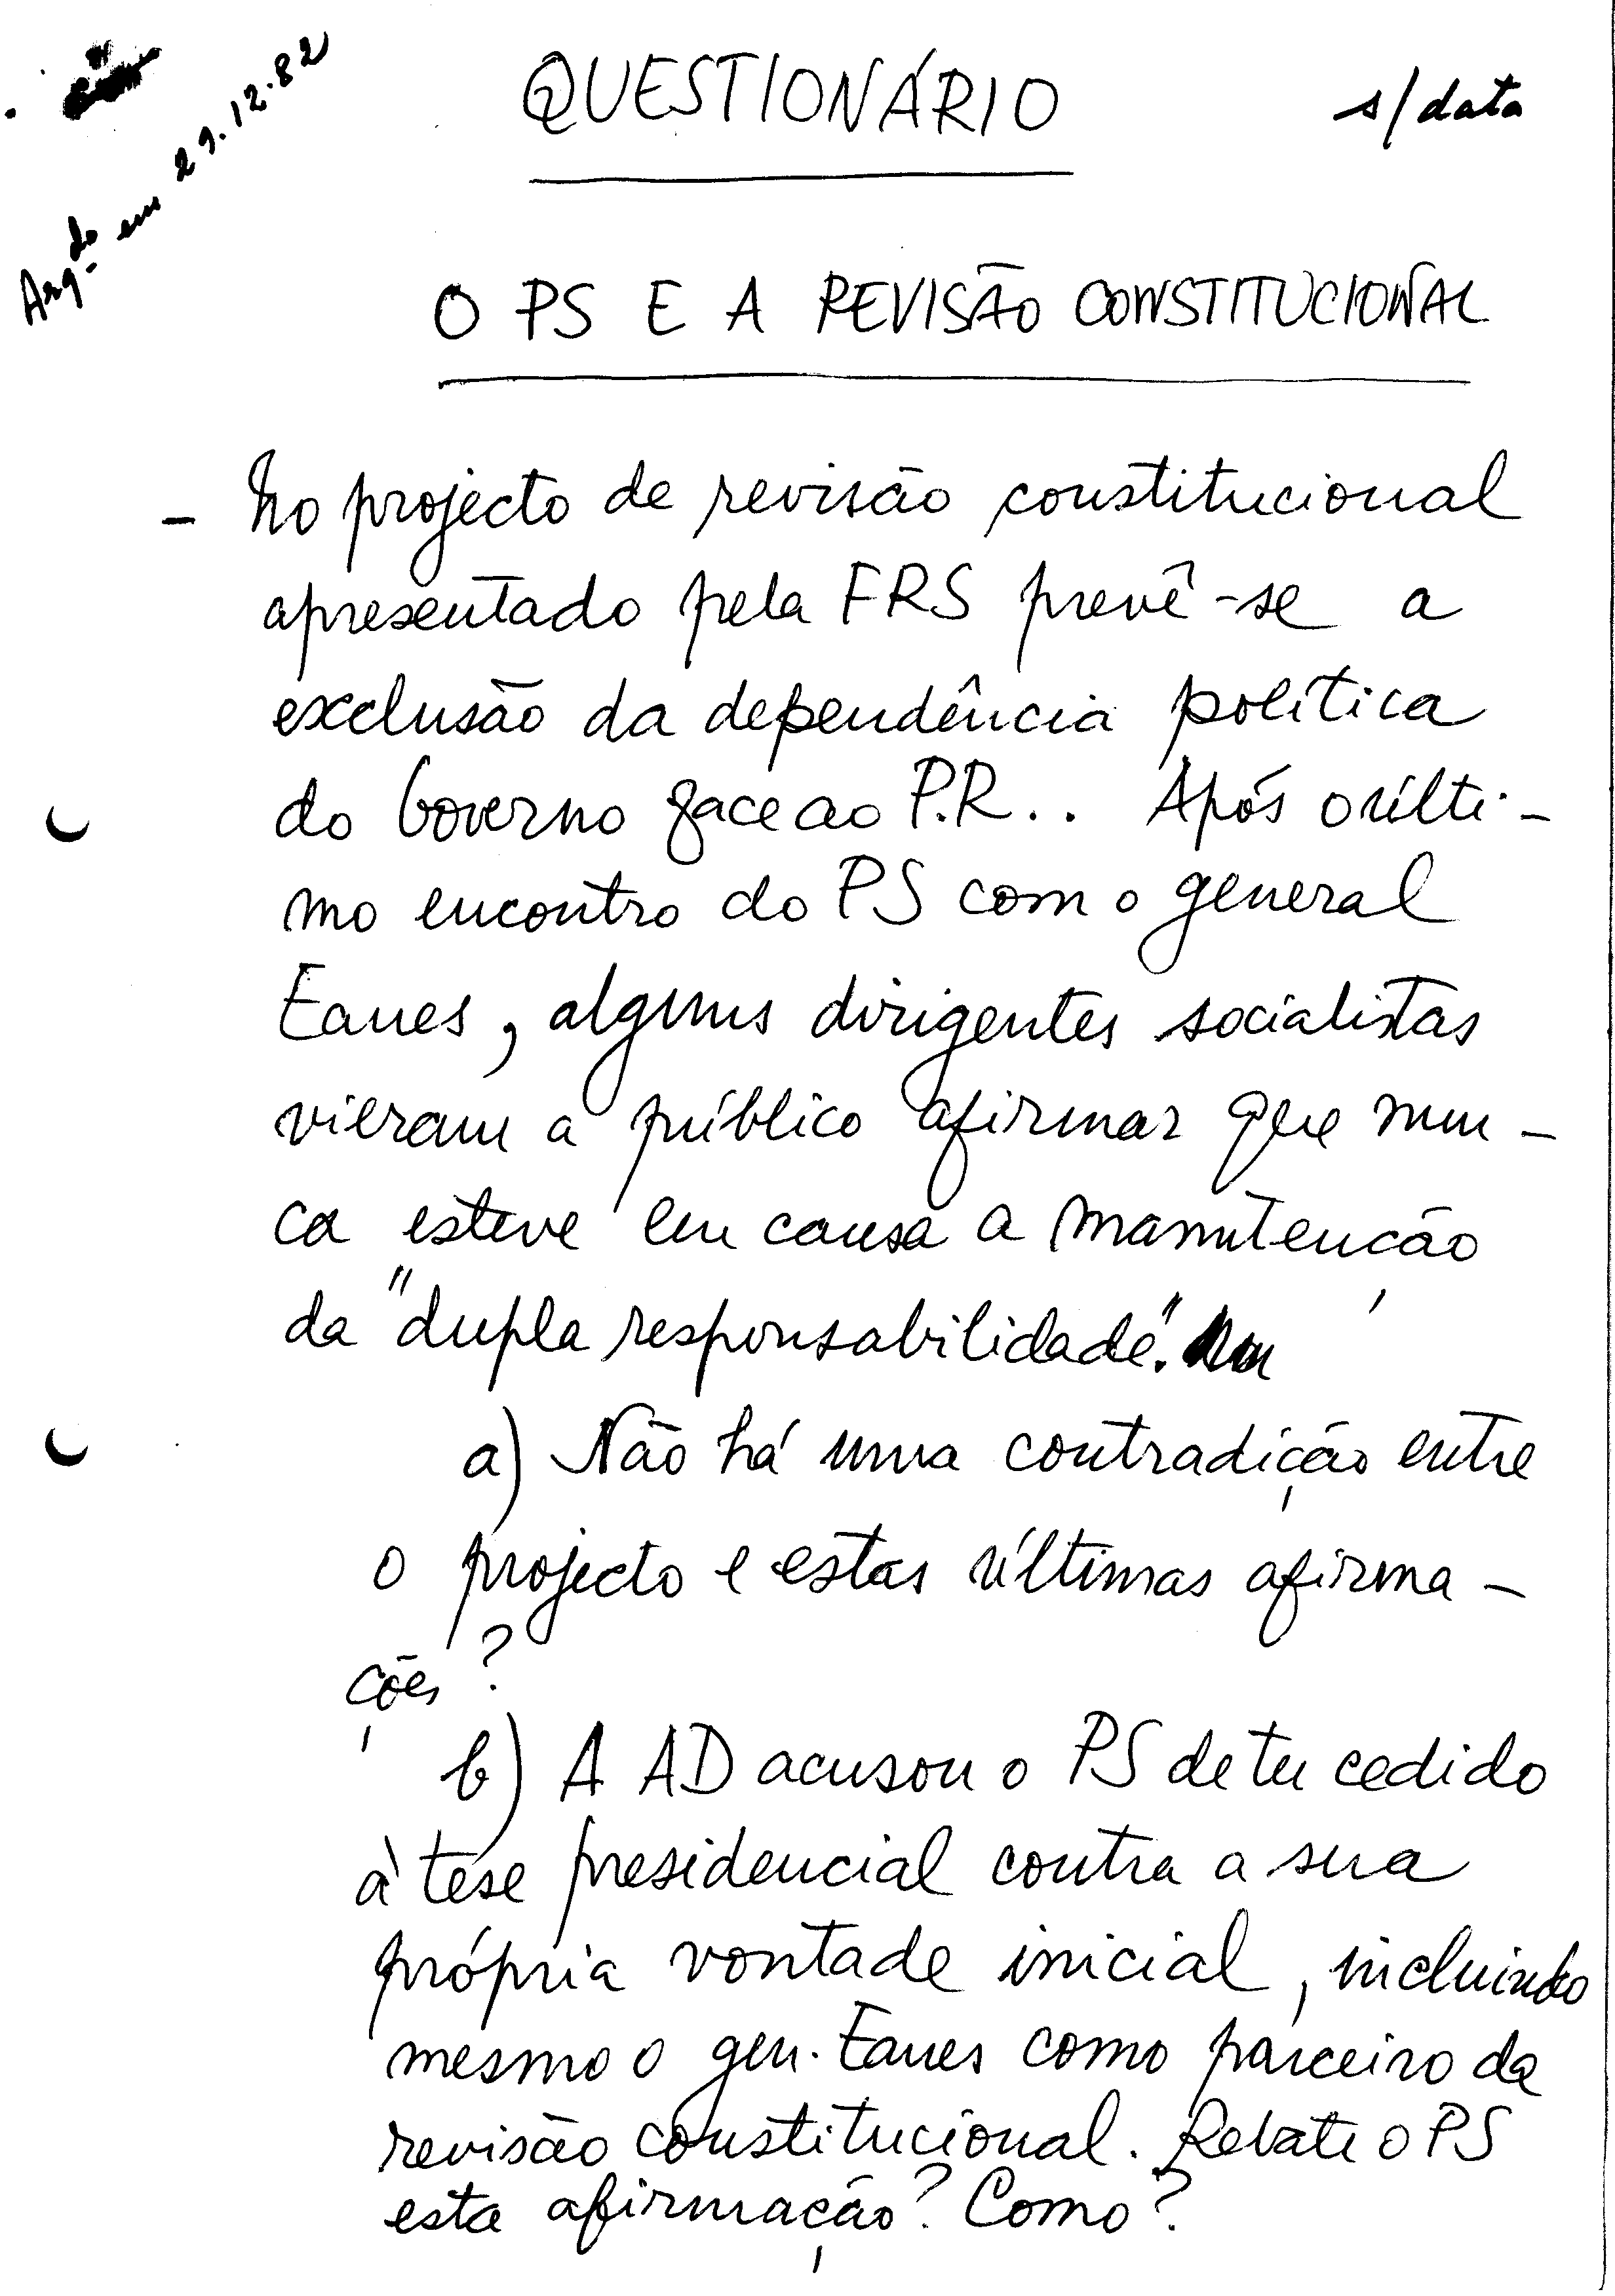 Arq.do em 29.12.82
QUESTIONÁRIO
s/data
O PS E A REVISÃO CONSTITUCIONAL
- No projecto de revisão constitucional
apresentado pela FRS prevê-se a
exclusão da dependência política
do Governo face ao P.R.. Após o últi-
mo encontro do PS com o general
Eanes, alguns dirigentes socialistas
vieram a público afirmar que nun-
ca esteve em causa a manutenção
da "dupla responsabilidade".
a) Não há uma contradição entre
o projecto e estas últimas afirma-
ções?
b) A AD acusou o PS de ter cedido
à tese presidencial contra a sua
própria vontade inicial, incluindo
mesmo o gen. Eanes como parceiro da
revisão constitucional. Rebate o PS
esta afirmação? Como?